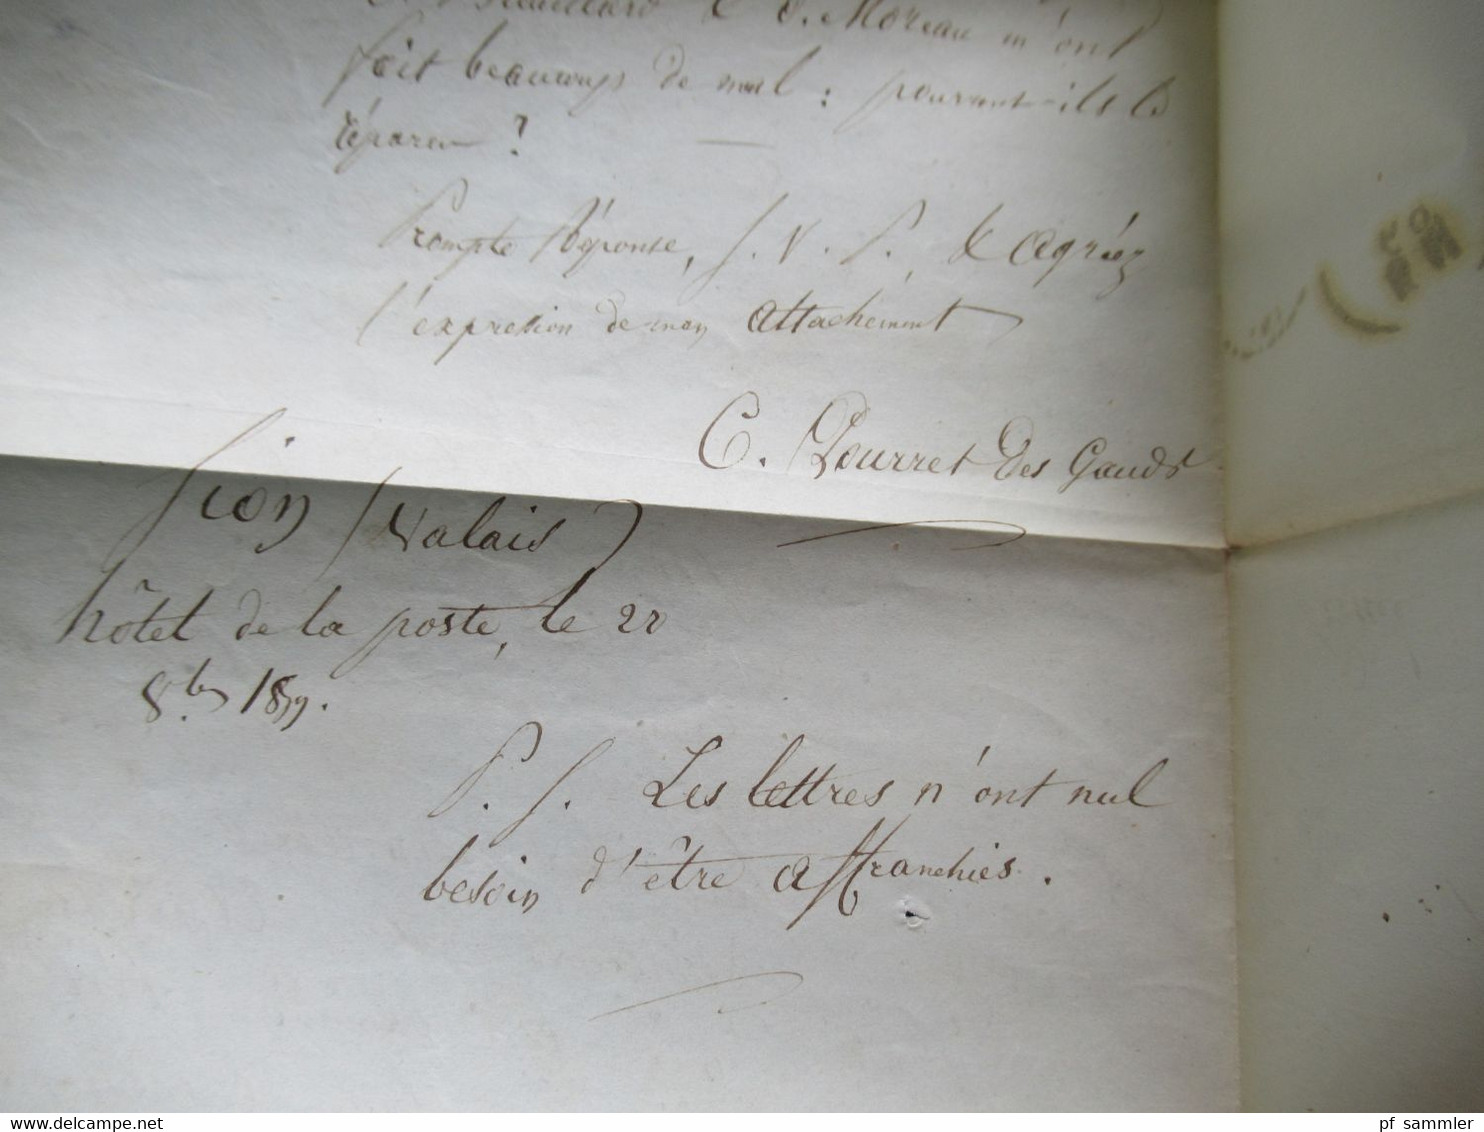 & d. Moreau m'ont
fait beaucoup de mal : pourront-ils le
réparer ?
Prompte Réponse, S. V. P., & agréez
l'expression de mon attachement
C. Pourret des Gauds
Sion (Valais)
hôtel de la poste, le 22
8.bre 1859.
P. S. Les lettres n'ont nul
besoin d'être affranchies.
delcampe.net
pf sammler